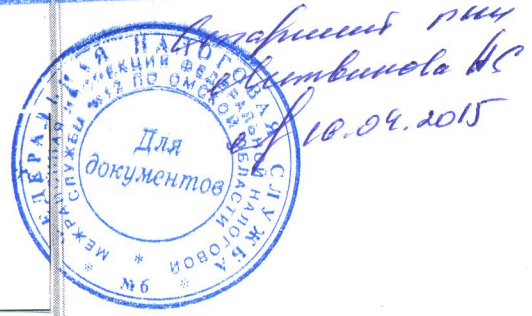 Старший гни
Литвинова НС
10.04.2015
ФЕДЕРАЛЬНАЯ НАЛОГОВАЯ СЛУЖБА
МЕЖРАЙОННАЯ ИНСПЕКЦИЯ ФЕДЕРАЛЬНОЙ НАЛОГОВОЙ
СЛУЖБЫ №12 ПО ОМСКОЙ ОБЛАСТИ
Для
документов
№6